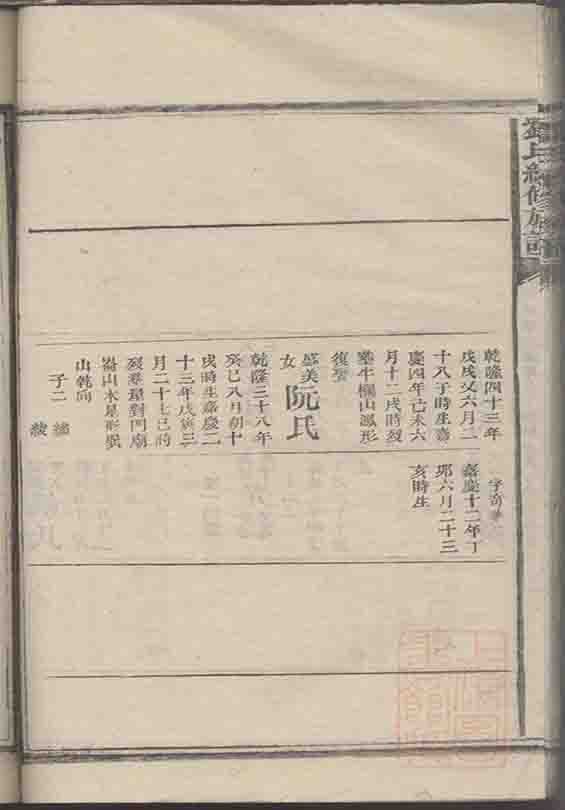 劉氏續修族譜
乾隆四十三年
戊戌又六月二
十八子時生嘉
慶四年己未六
月十二戌時歿
葬牛欄山鳳形
復聖
盛美
女
阮氏
乾隆三十八年
癸巳八月朔十
戌時生嘉慶二
十三年戊寅三
月二十七巳時
歿葬
對門廟
崙山水星形巽
山乾向
子二
字奇
嘉慶十二年丁
卯六月二十三
亥時生
上海圖
書館藏